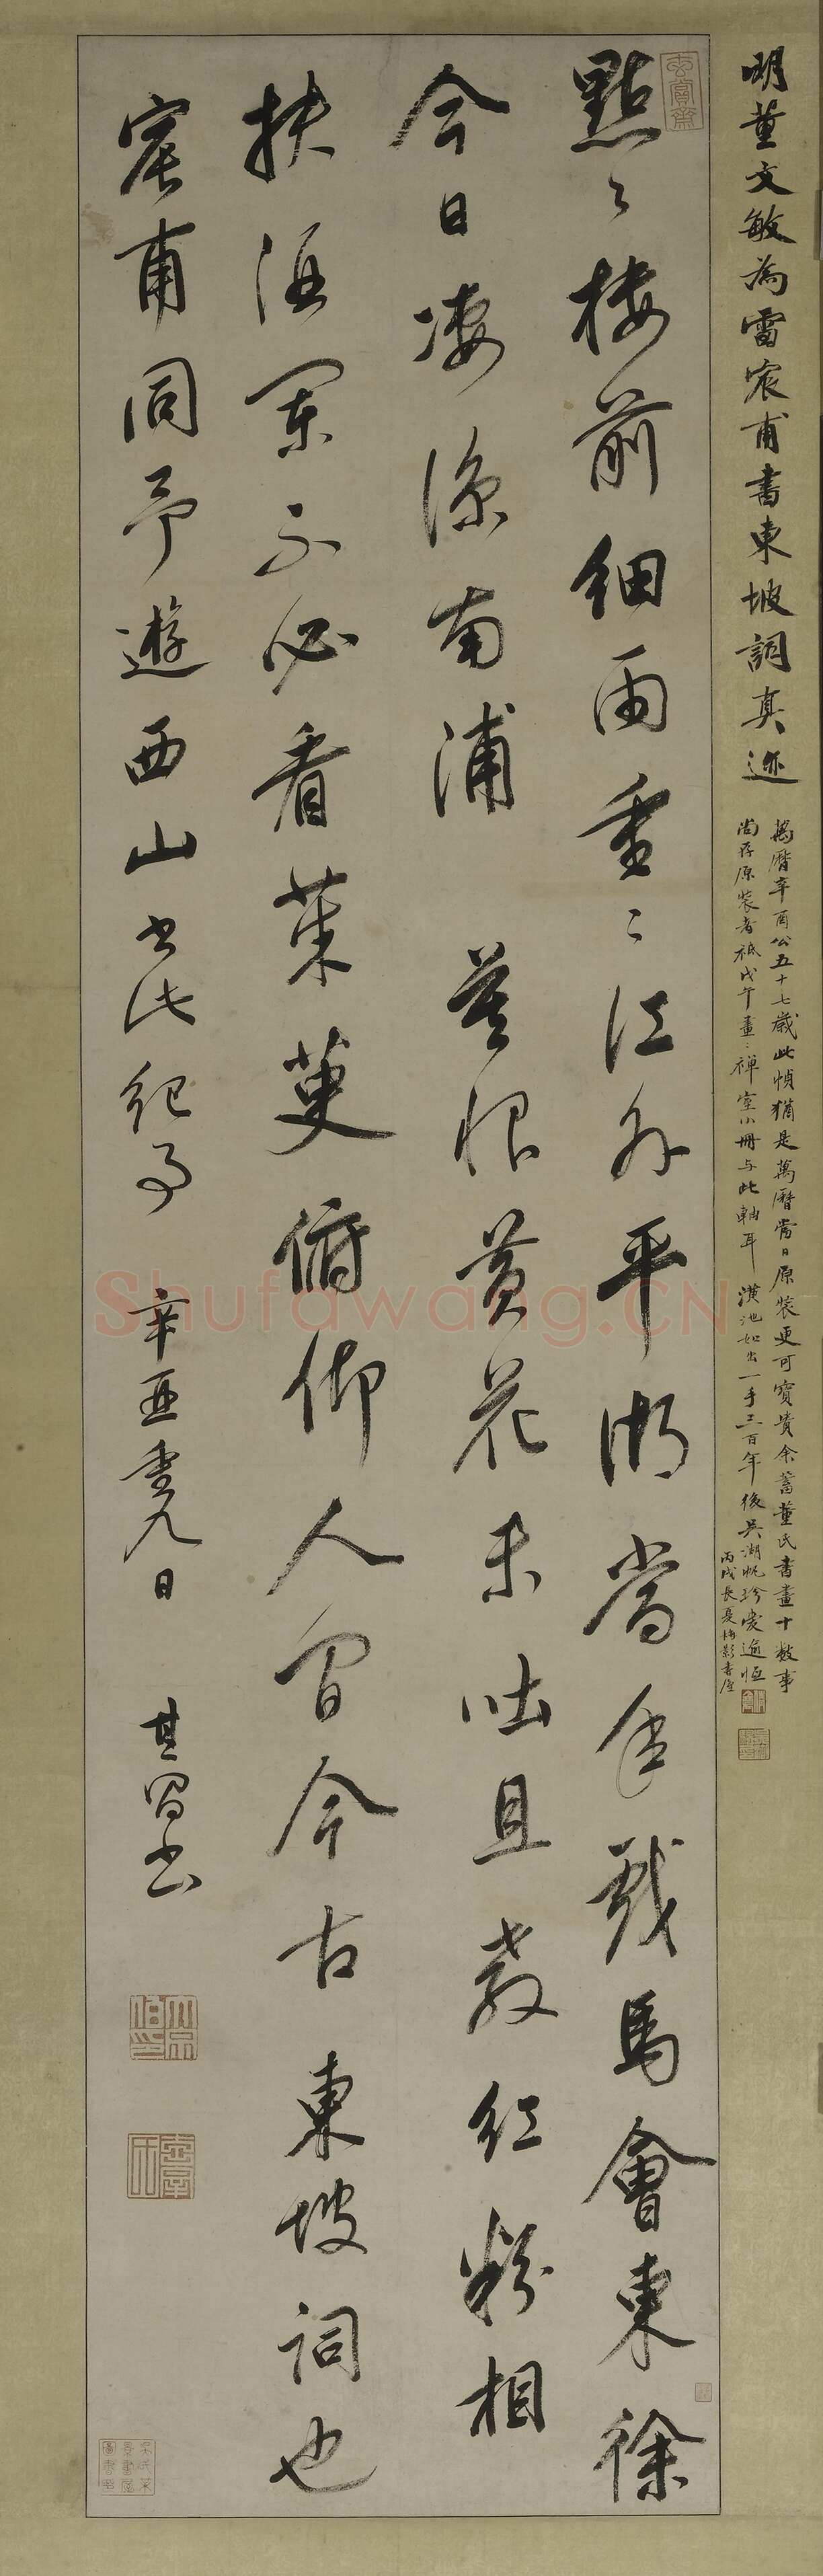 明董文敏為雷宸甫書東坡詞真迹
萬曆辛酉公五十七歲此幀猶是萬曆當日原裝更可寶貴余蓄董氏書畫十數事
尚存原裝者祗戊午畫〻禪室小冊与此軸耳 潢池如出一手三百年後吳湖帆珍愛逾恒
丙戌長夏梅影書屋
玄賞齋
點〻樓前細雨重〻江外平湖當年戲馬會東徐
今日凄涼南浦 莫恨黃花未吐且教紅粉相
扶酒闌不必看茱萸俯仰人間今古 東坡詞也
宸甫同予遊西山書此紀事 辛亥重九日 其昌書
Shufawang.CN